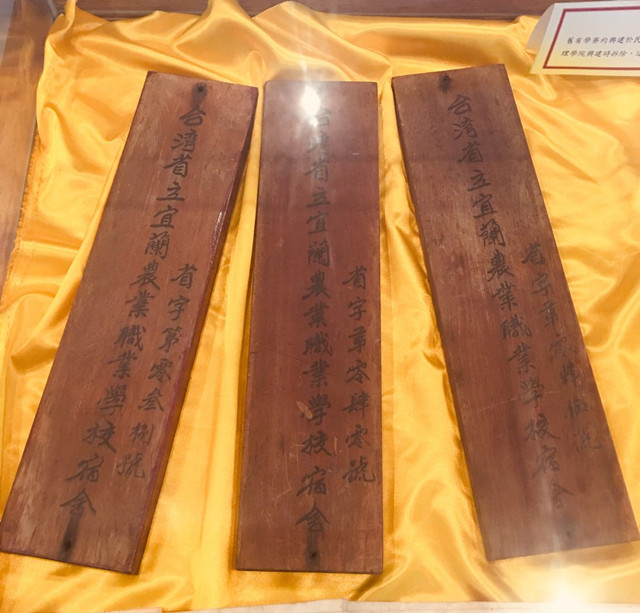 舊有學寮約興建於民
理學院興建時拆除
台湾省立宜蘭農業職業學校宿舍
省字第零叁捌號
台湾省立宜蘭農業職業學校宿舍
省字第零肆零號
台湾省立宜蘭農業職業學校宿舍
省字第零號